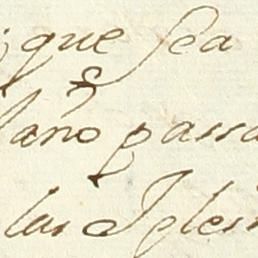 que sea
año passa
las Iglesi